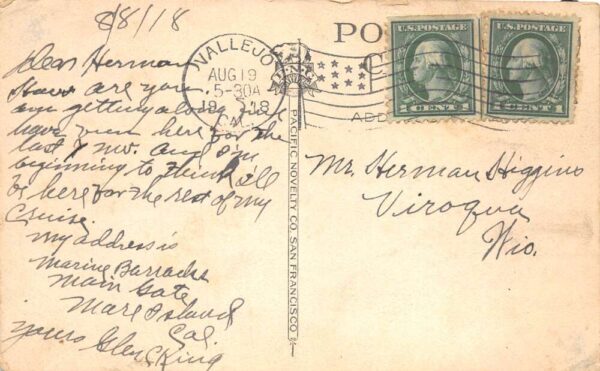 8/8/18
Dear Herman
How are you.
am getting along fine
have been here for the
last 7 mo. and I'm
beginning to think I'll
be here for the rest of my
Cruise.
my address is
Marine Barracks
Main Gate
Mare Island
Cal.
yours Glen King
VALLEJO
AUG 19
5-30A
1918
CAL.
PACIFIC NOVELTY CO. SAN FRANCISCO
PO
C
ADD
U.S. POSTAGE
1 CENT 1
U.S. POSTAGE
1 CENT 1
Mr. Herman Higgins
Viroqua
Wis.